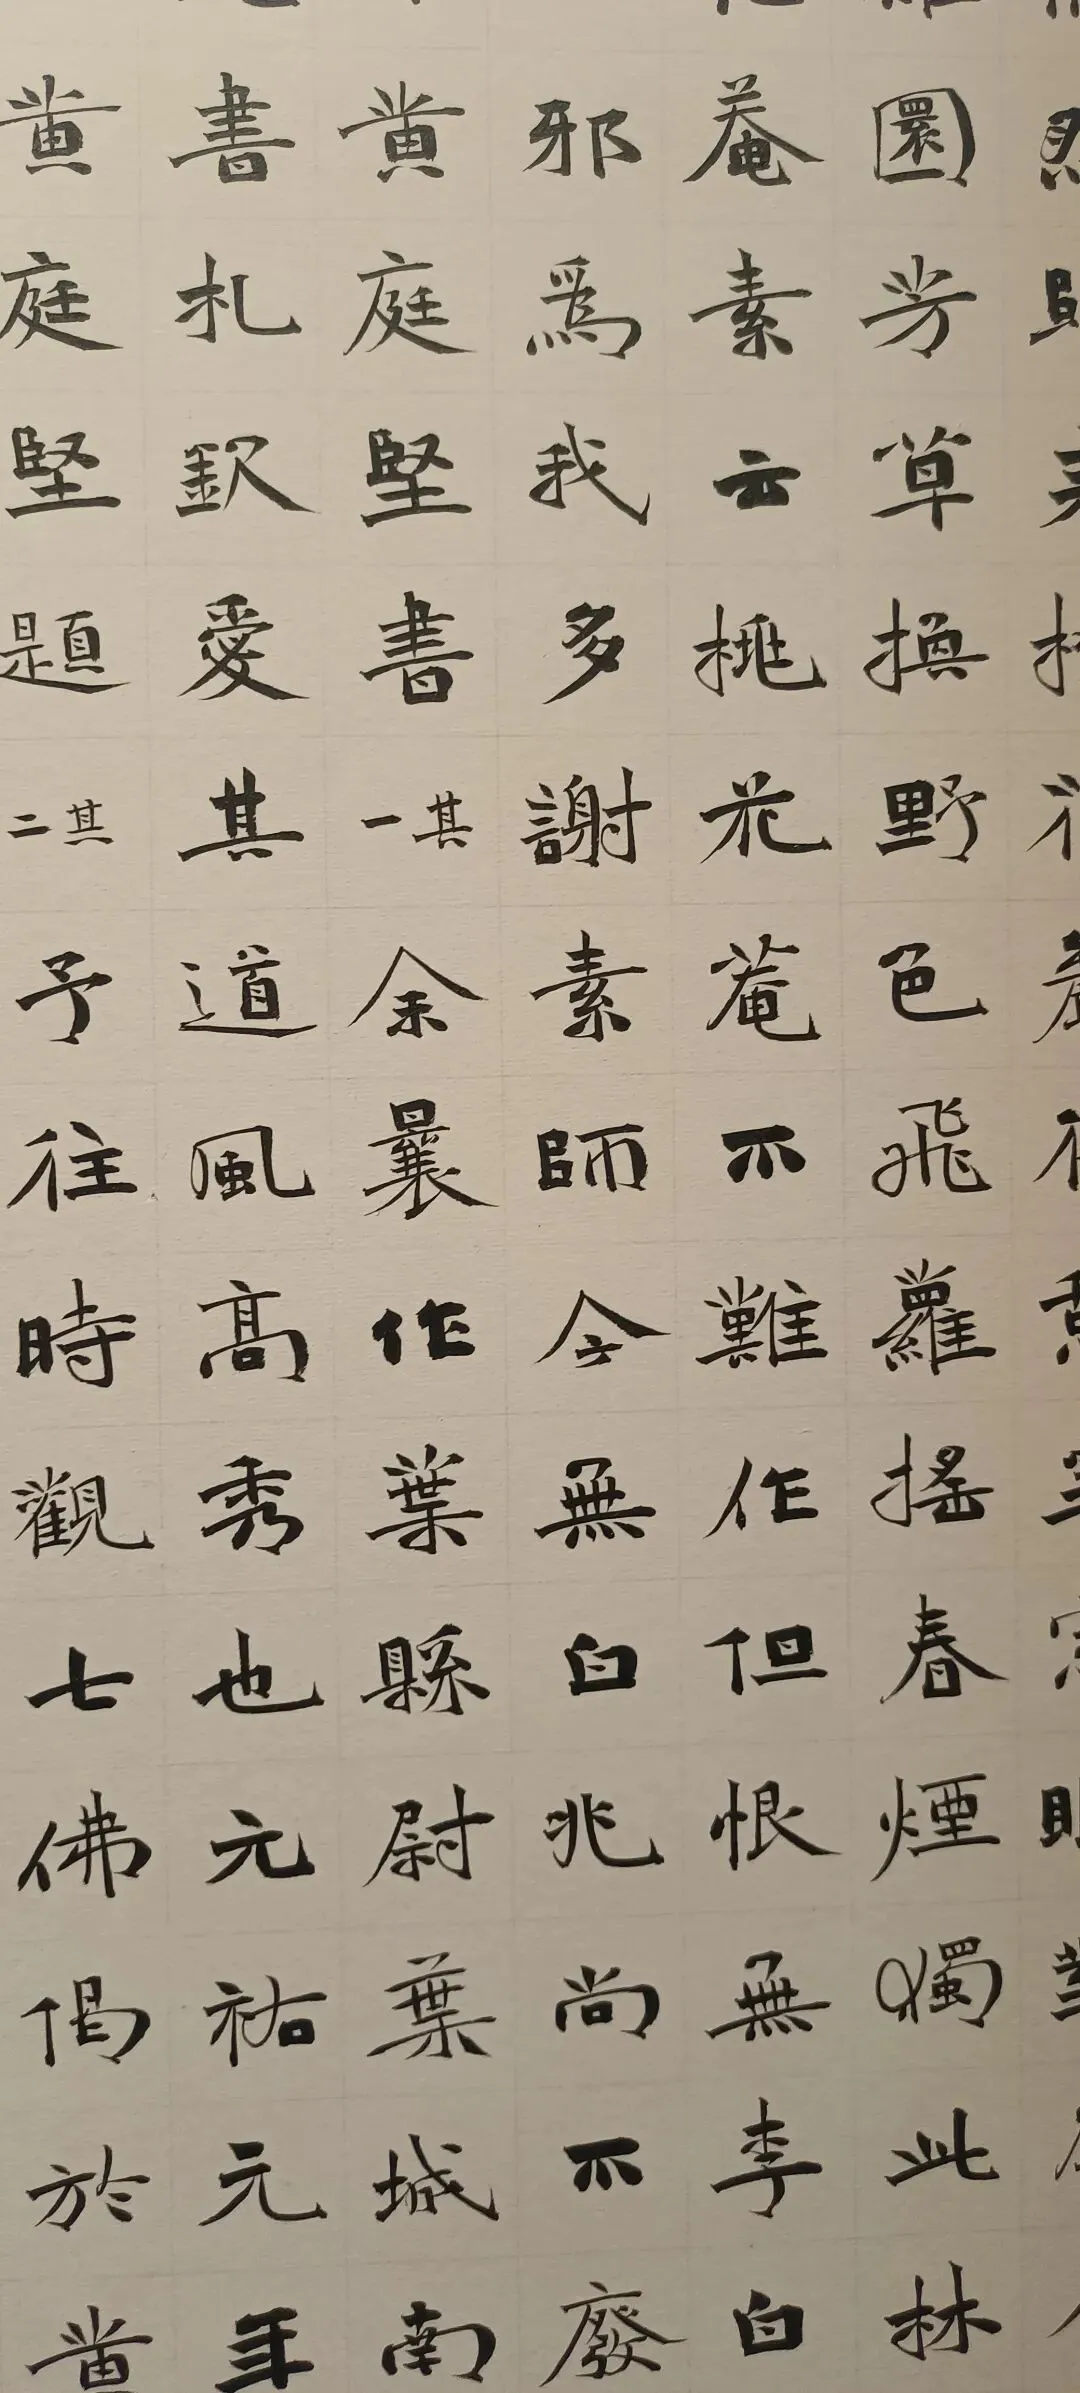 園芳草換野色飛蘿搖春煙獨此林
菴素云桃花菴不難作但恨無李白
邪爲我多謝素師今無白兆尚不廢
黄庭堅書其一余曩作葉縣尉葉城南
書札欽愛其道風高秀也元祐元年
黄庭堅題其二予往時觀七佛偈於黄